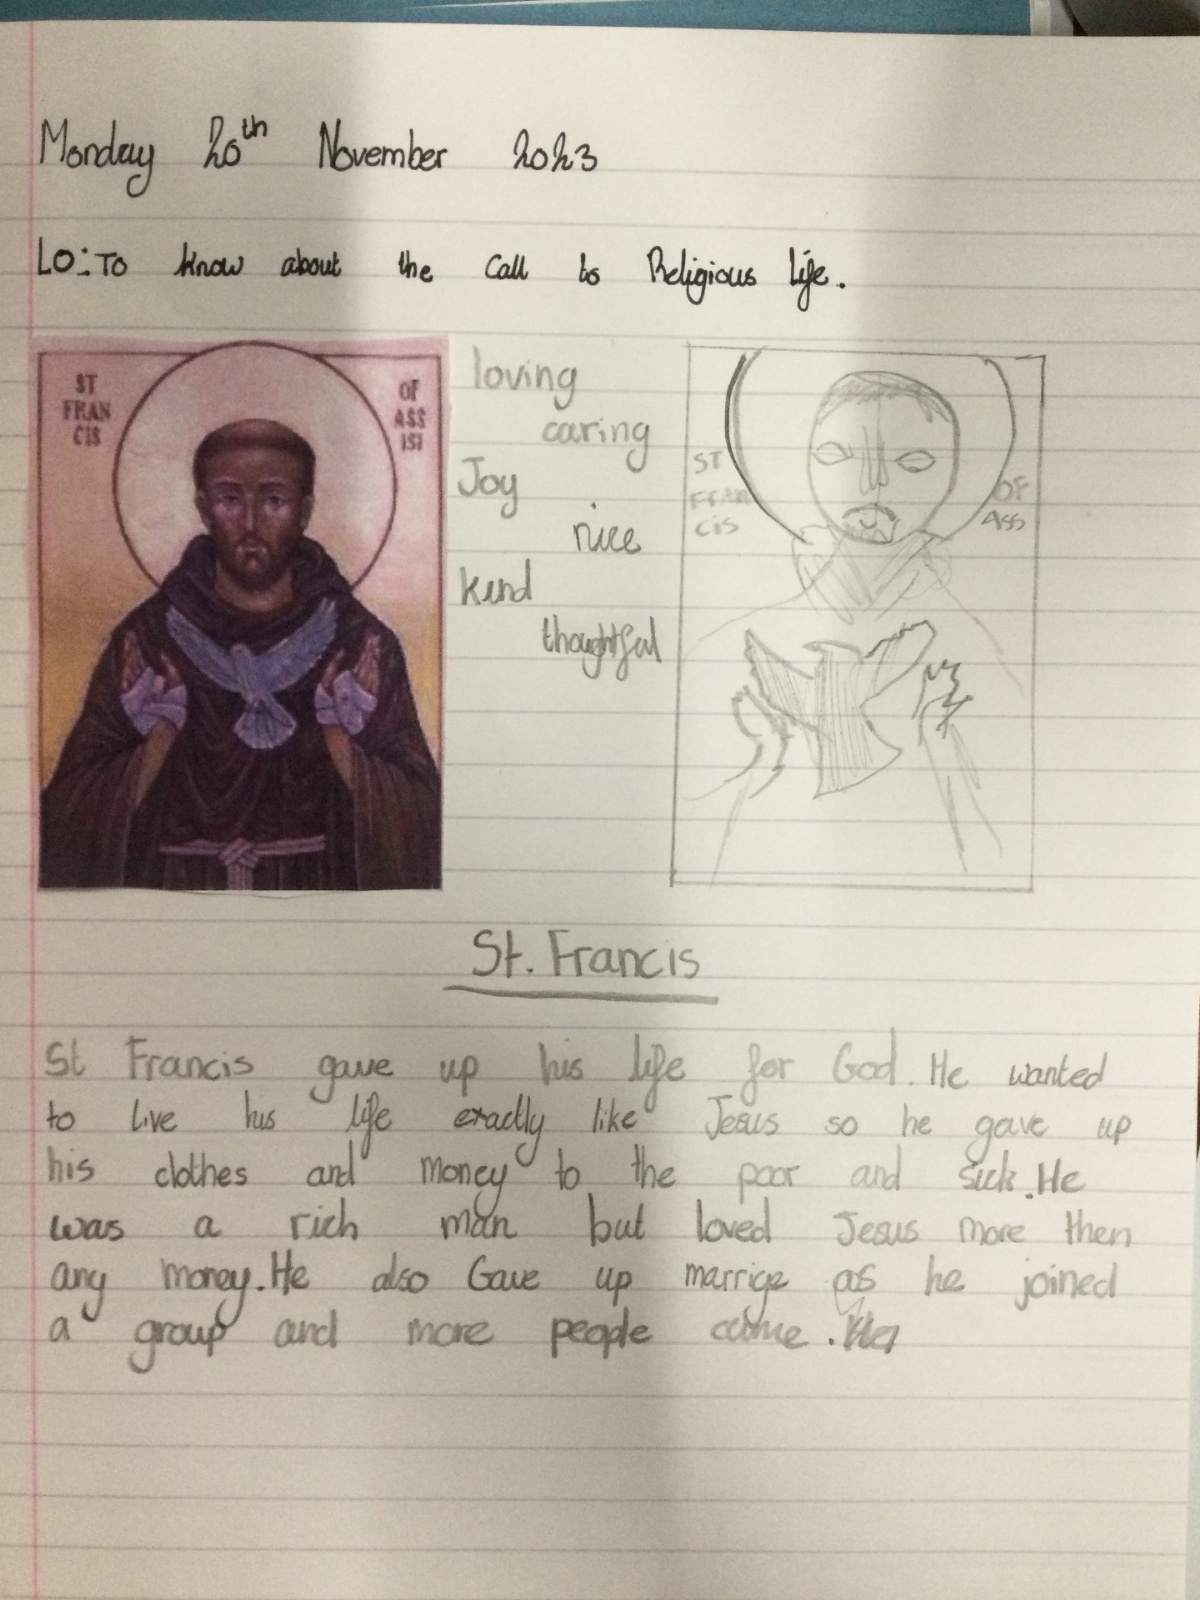 Monday 20th November 2023
LO: To know about the Call to Religious life.
ST
FRAN
CIS
OF
ASS
ISI
loving
caring
Joy
nice
kind
thoughtful
ST
FRAN
cis
OF
Ass
St. Francis
St Francis gave up his life for God. He wanted
to live his life exactly like Jesus so he gave up
his clothes and money to the poor and sick. He
was a rich man but loved Jesus more then
any money. He also Gave up marrige as he joined
a group and more people come.